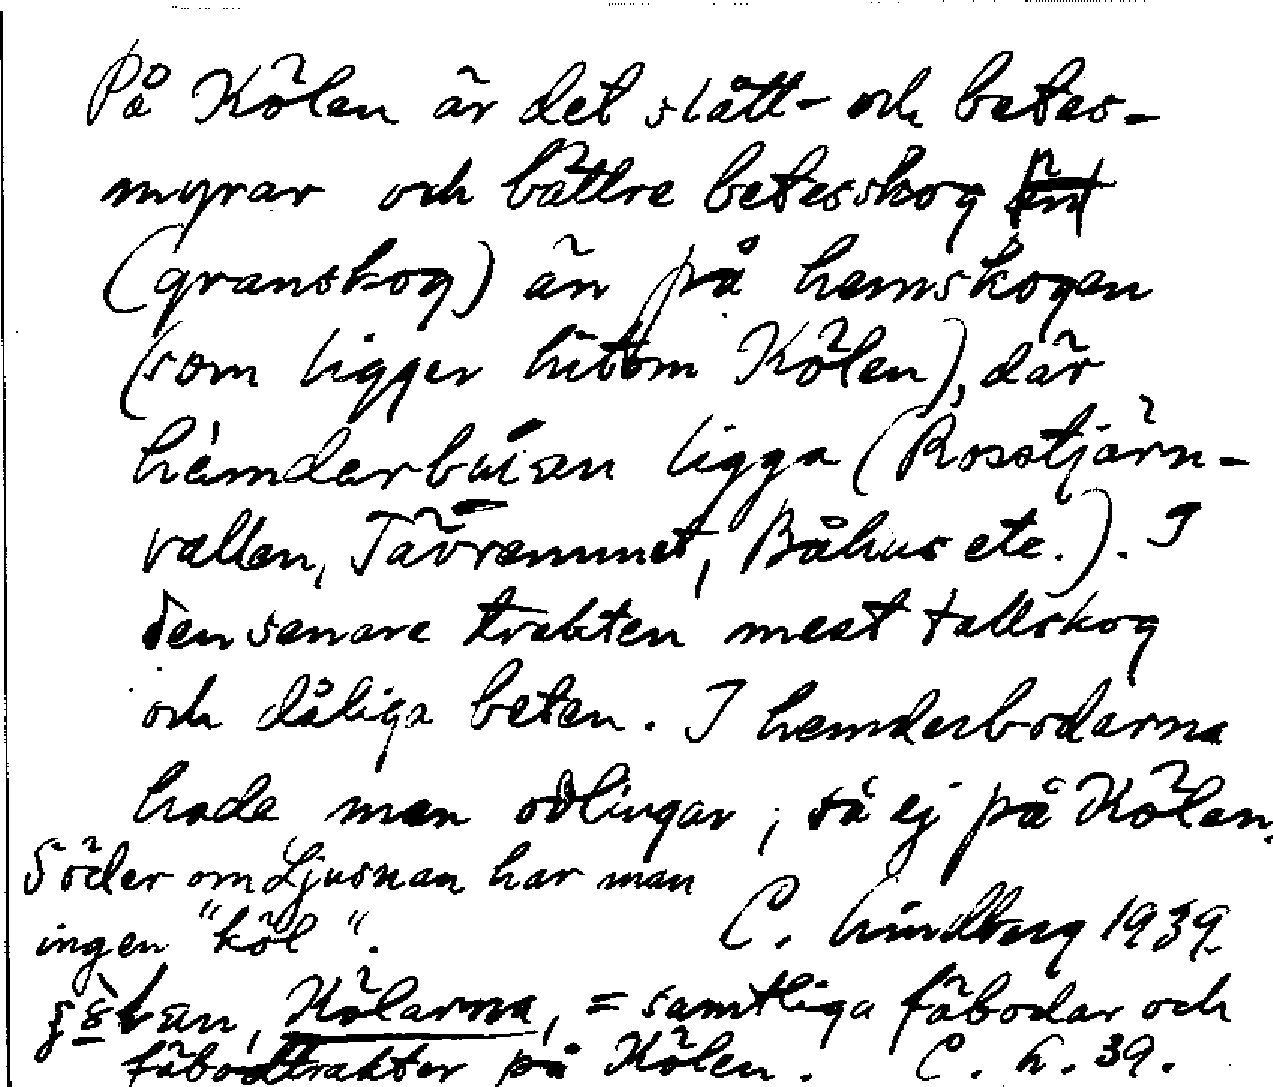 På Kölen är det slått- och betes-
myrar och bättre betesskog
(granskog) än på hemskogen
(som ligger hitom Kölen), där
hemderbuan ligga (Rosstjärn-
vallen, Tävremmet, Båhus etc.). I
den senare trakten mest tallskog
och dåliga beten. I hemderbodarna
hade man odlingar, så ej på Kölen.
Söder om Ljusnan har man
ingen "köl".
C. Lindberg 1939
Kölarna, = samtliga fäbodar och
fäbodtrakter på Kölen. C. L. 39.